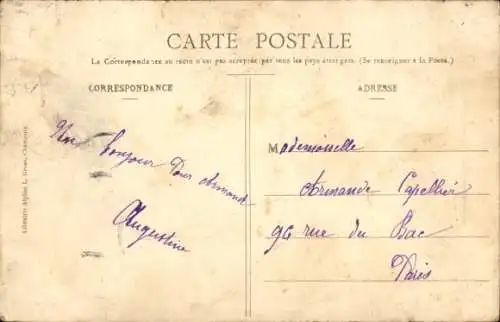 CARTE POSTALE
La Correspondance au recto n'est pas acceptée par tous les pays étrangers. (Se renseigner à la Poste.)
CORRESPONDANCE
Un bonjour Pour Armande
Augustine
ADRESSE
Mademoisselle
Armande Capellier
96 rue du Bac
Paris
Librairie Alpine L.